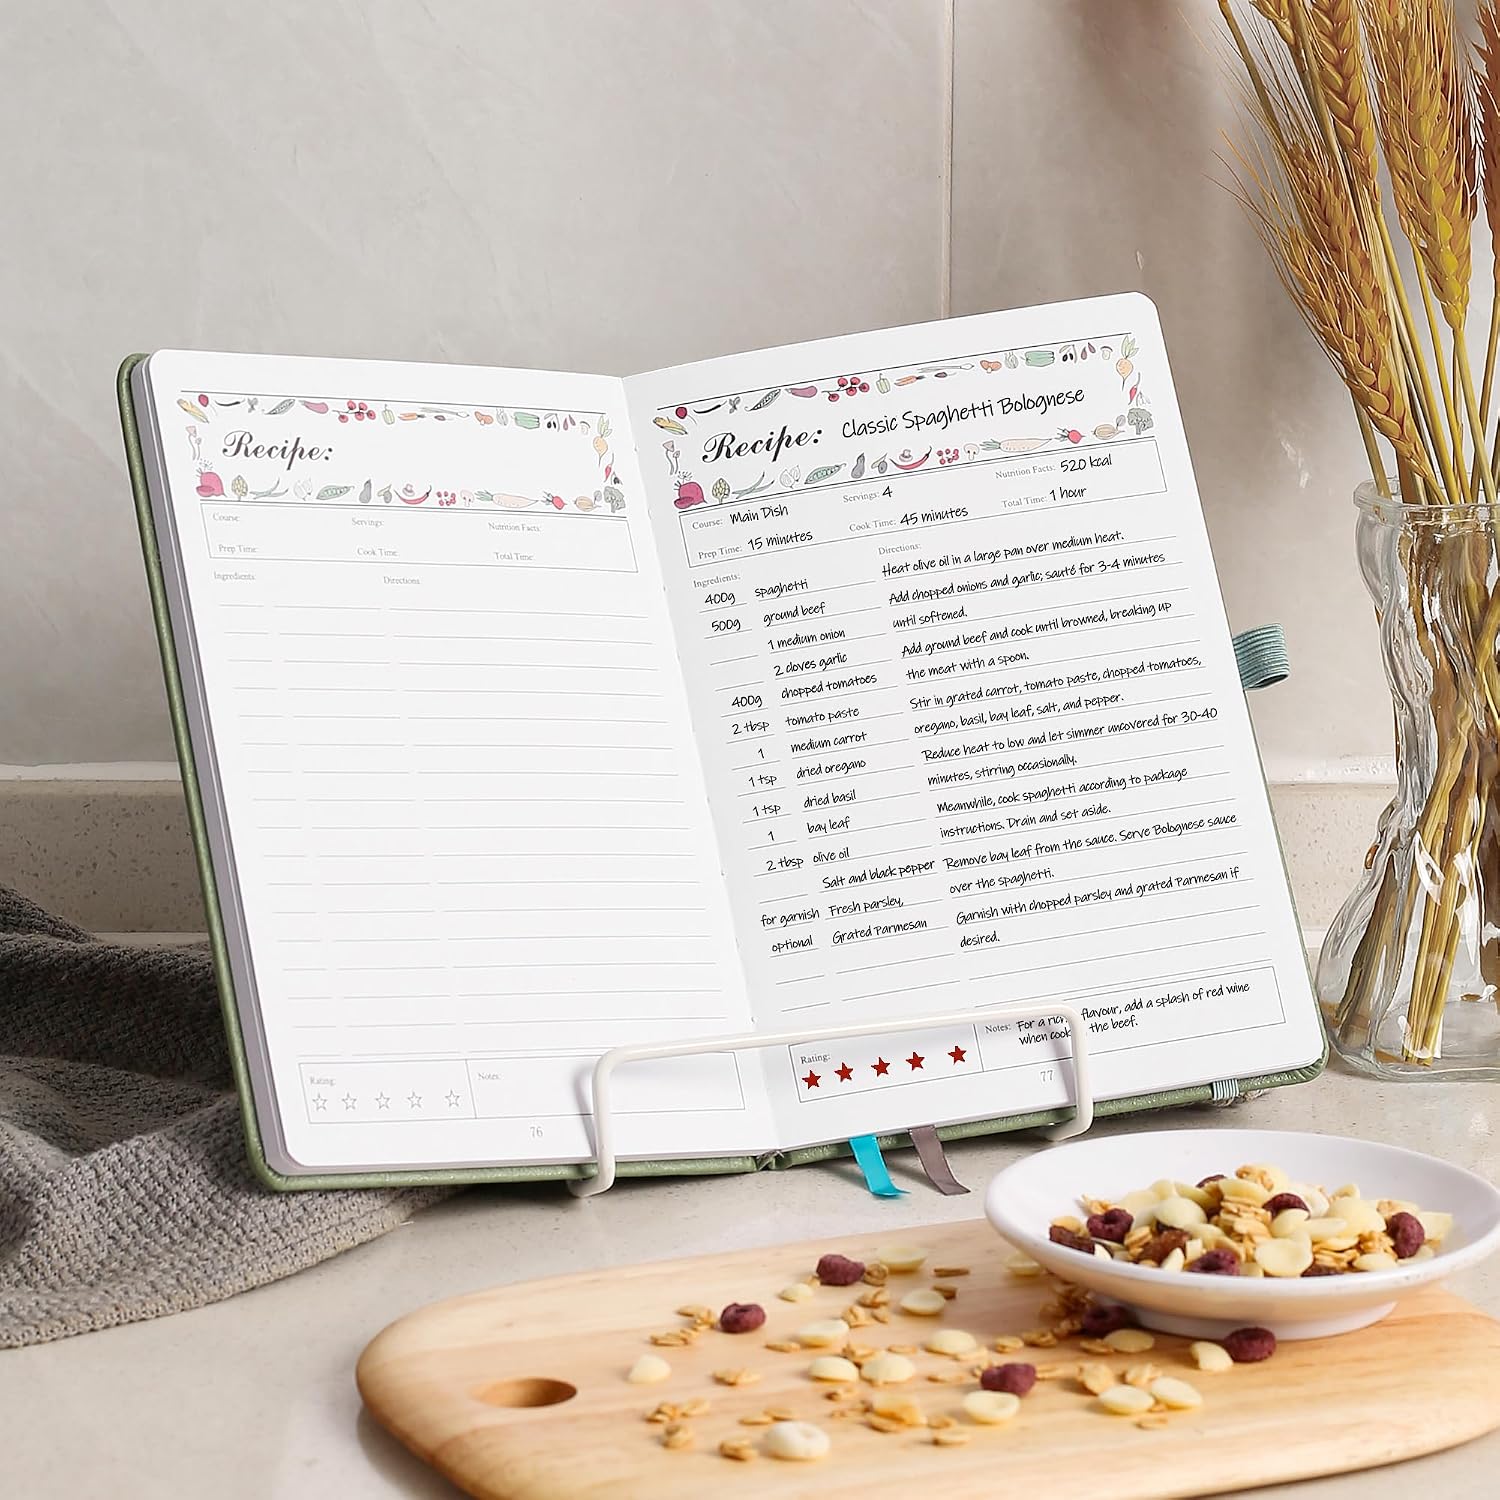 Recipe:
Course:
Servings:
Nutrition Facts:
Prep Time:
Cook Time:
Total Time:
Ingredients:
Directions:
Rating:
Notes:
76
Recipe: Classic Spaghetti Bolognese
Course: Main Dish
Servings: 4
Nutrition Facts: 520 kcal
Prep Time: 15 minutes
Cook Time: 45 minutes
Total Time: 1 hour
Ingredients:
400g spaghetti
500g ground beef
1 medium onion
2 cloves garlic
400g chopped tomatoes
2 tbsp tomato paste
1 medium carrot
1 tsp dried oregano
1 tsp dried basil
1 bay leaf
2 tbsp olive oil
Salt and black pepper
for garnish Fresh parsley,
optional Grated Parmesan
Directions:
Heat olive oil in a large pan over medium heat.
Add chopped onions and garlic; sauté for 3-4 minutes
until softened.
Add ground beef and cook until browned, breaking up
the meat with a spoon.
Stir in grated carrot, tomato paste, chopped tomatoes,
oregano, basil, bay leaf, salt, and pepper.
Reduce heat to low and let simmer uncovered for 30-40
minutes, stirring occasionally.
Meanwhile, cook spaghetti according to package
instructions. Drain and set aside.
Remove bay leaf from the sauce. Serve Bolognese sauce
over the spaghetti.
Garnish with chopped parsley and grated Parmesan if
desired.
Rating:
Notes: For a flavour, add a splash of red wine
when the beef.
77